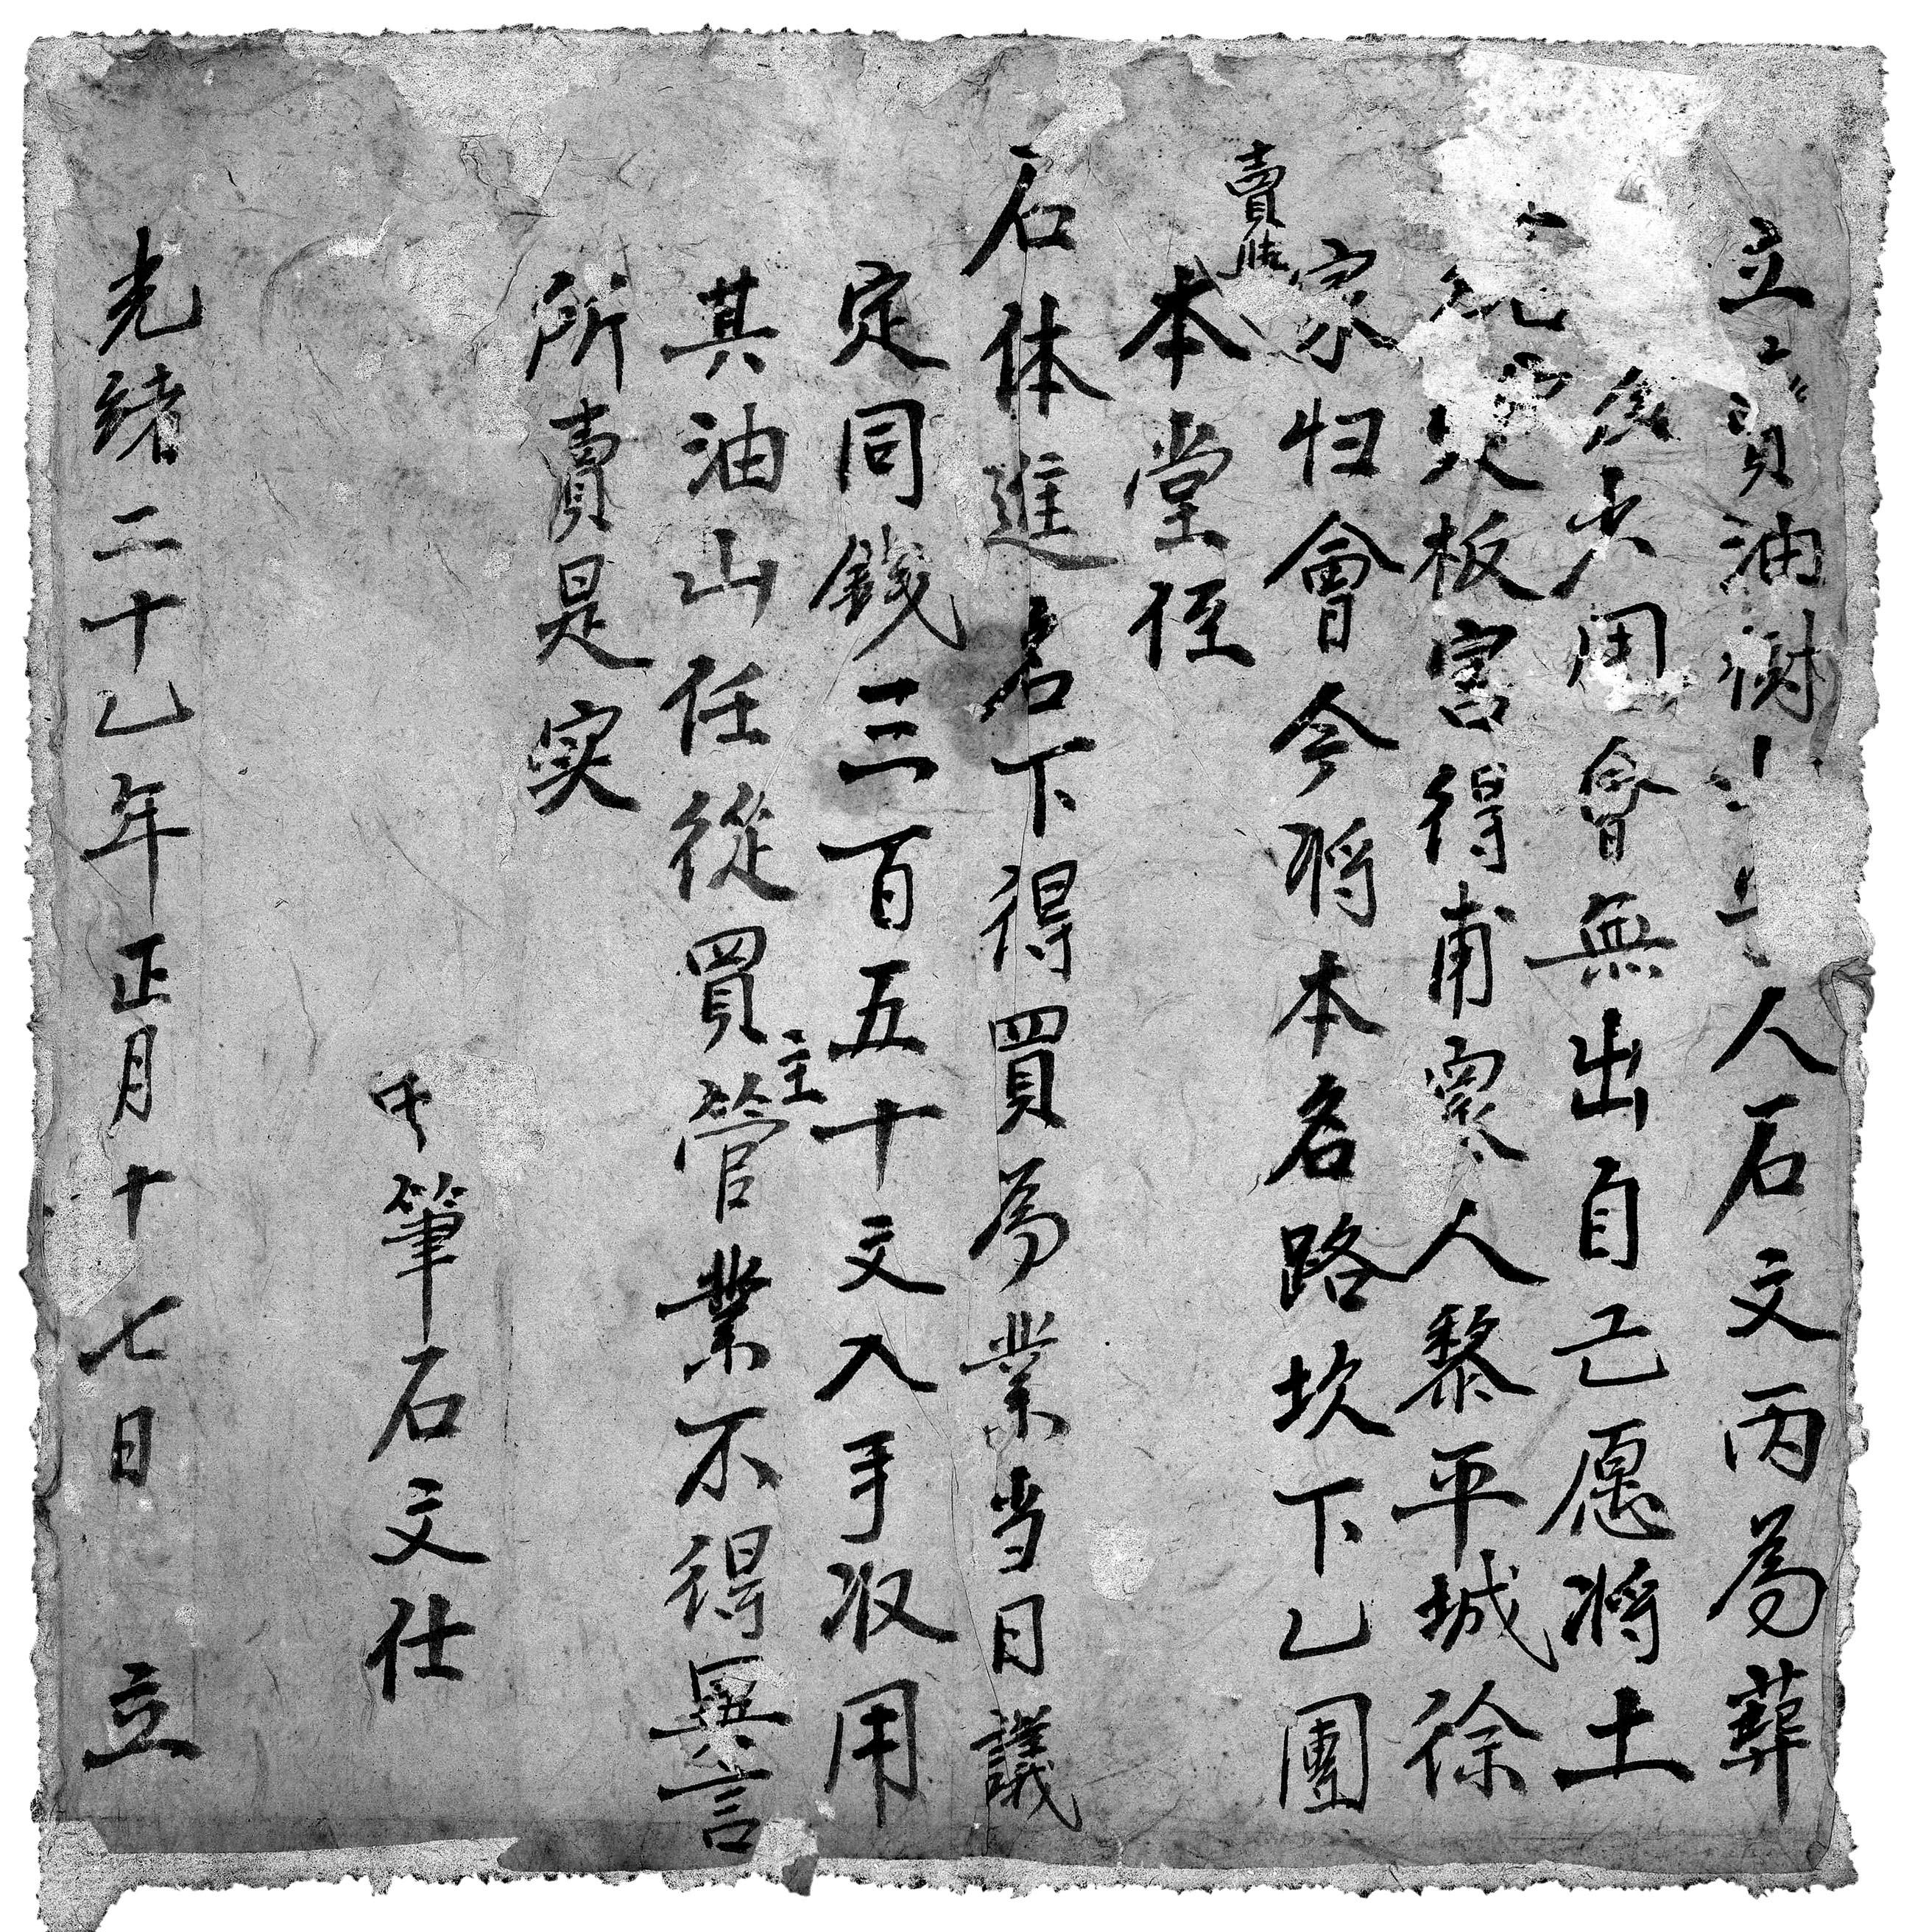 立賣油樹人石文丙為葬
夫用會無出自己愿將土
火板害得甫寨人黎平城徐
家归會今將本名路坎下乙團
賣
本堂侄
石体進名下得買為業当日議
定同錢三百五十文入手收用
其油山任從買主管業不得異言
所賣是实
筆石文仕
光緒二十乙年正月十七日立